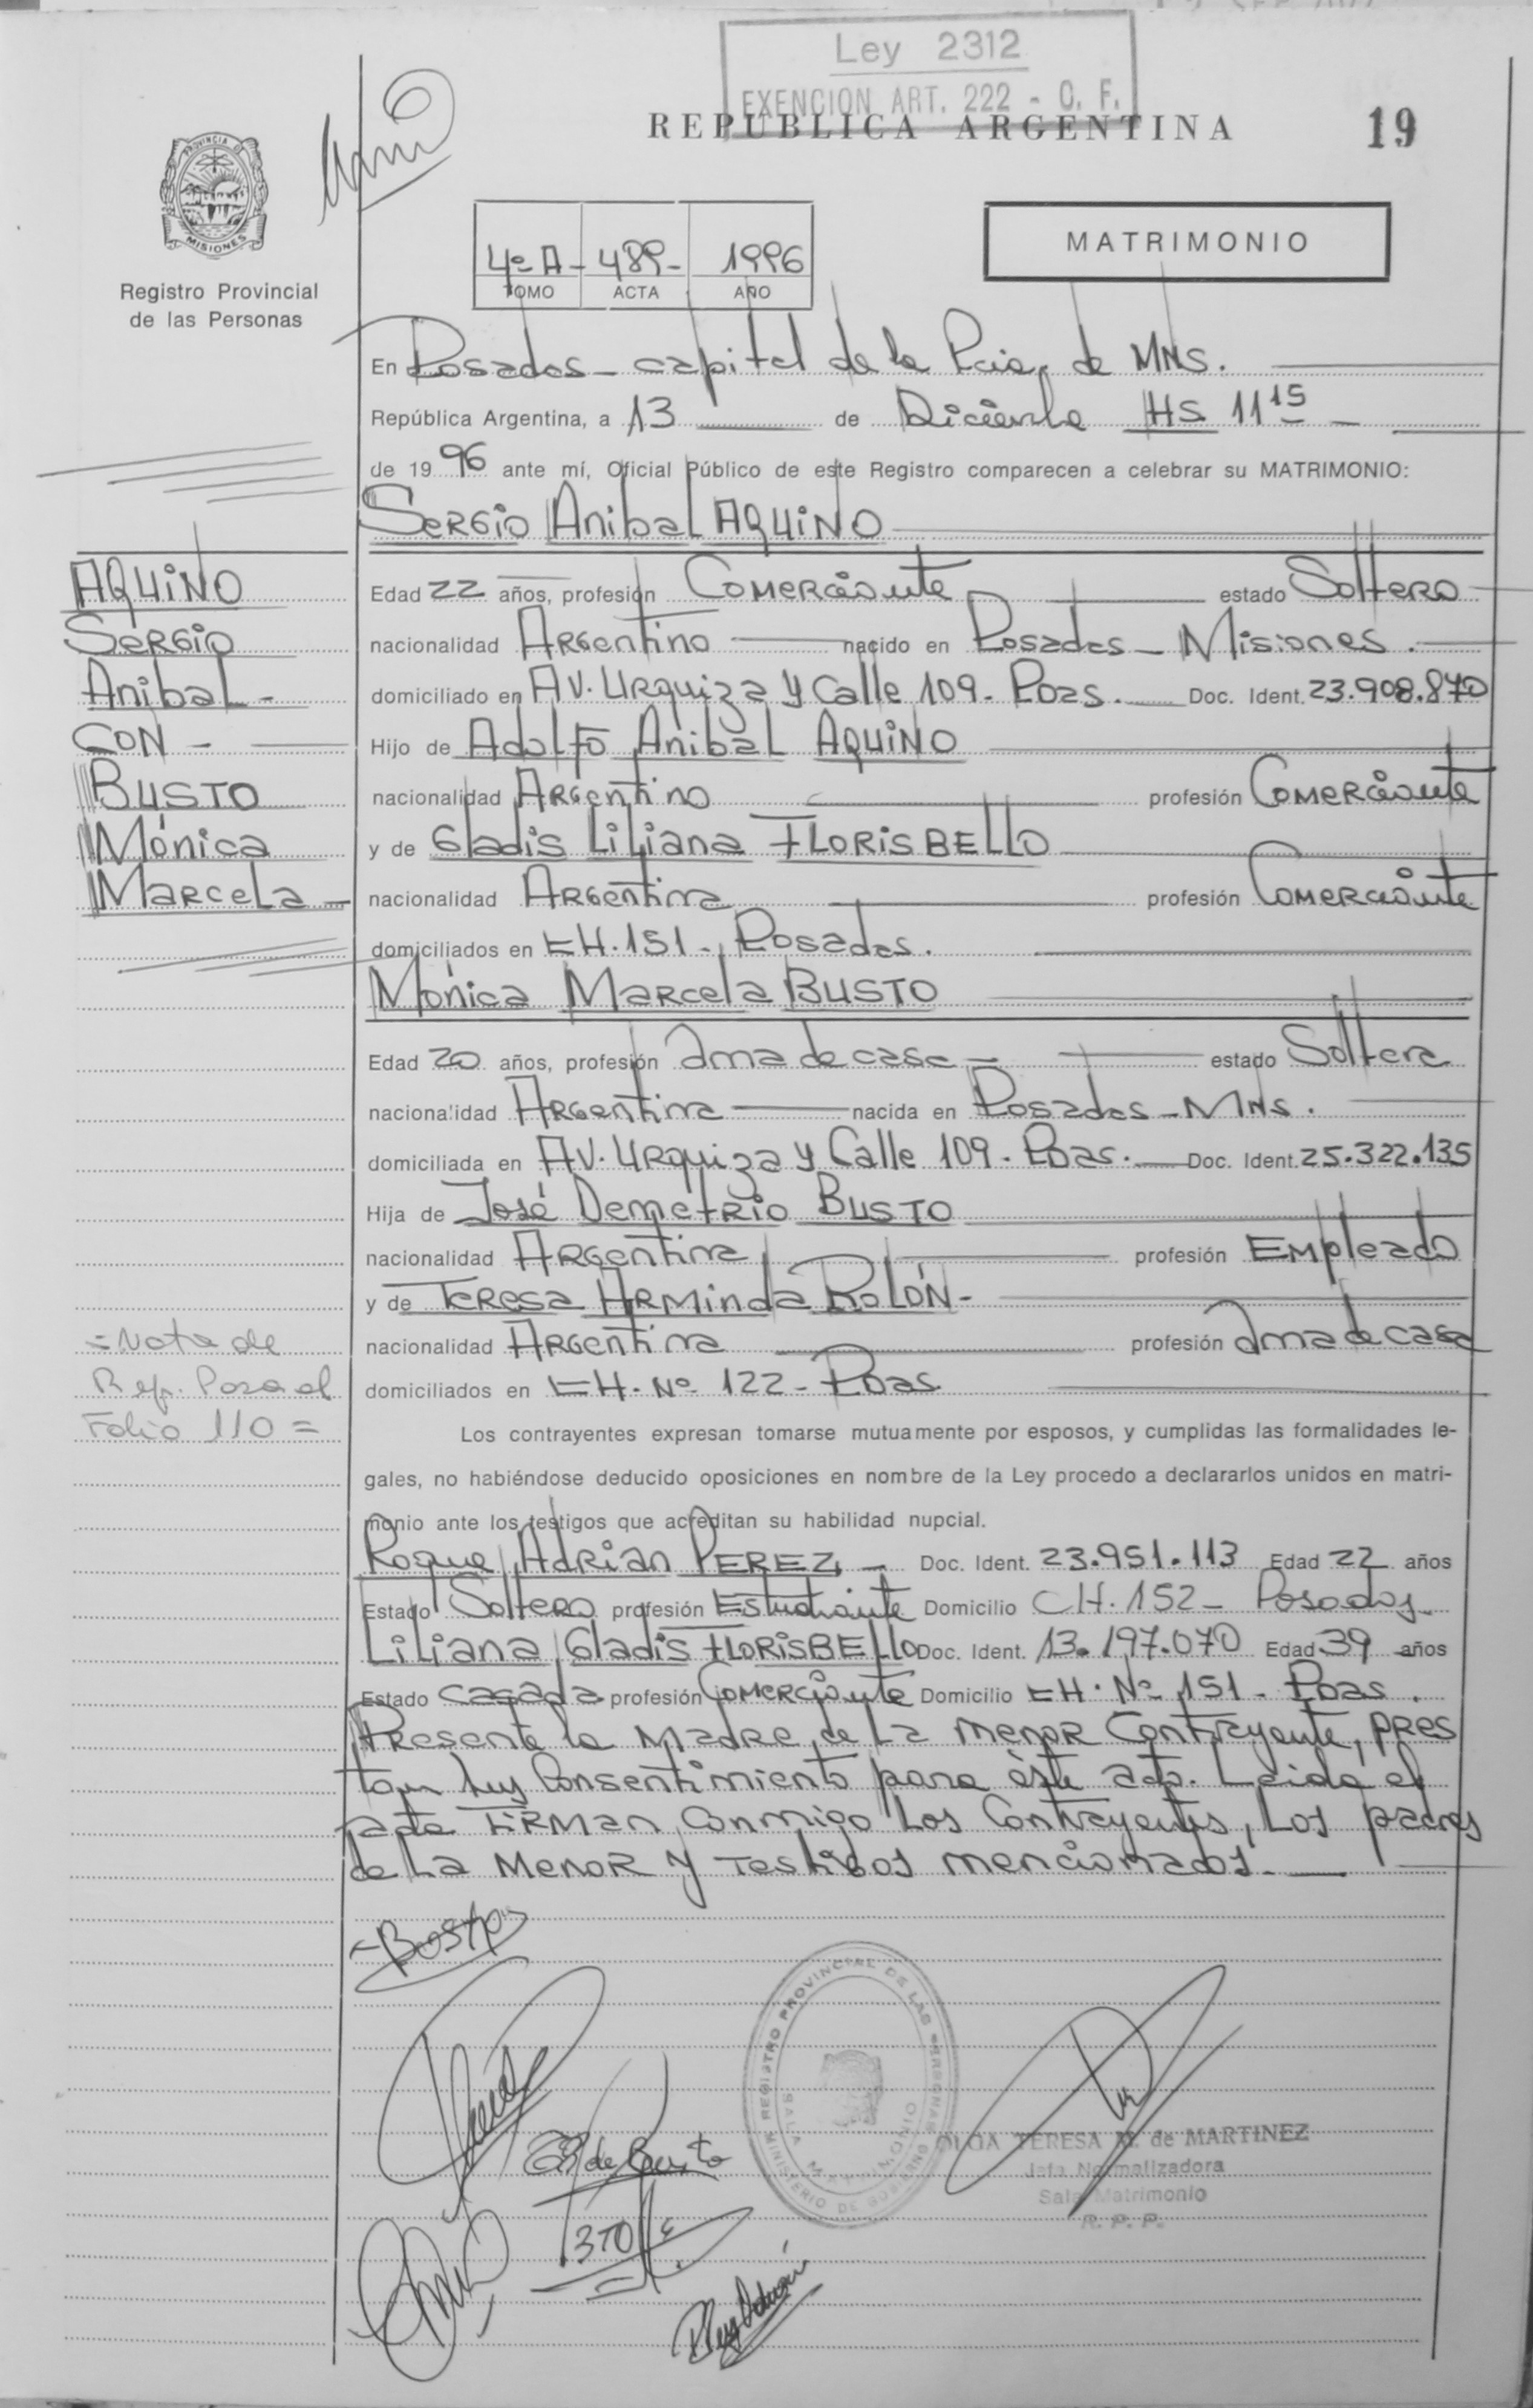 Ley 2312
EXENCION ART. 222 - C. F.
REPUBLICA ARGENTINA
19
PROVINCIA DE
MISIONES
Registro Provincial
de las Personas
4º A - 489 - 1996
TOMO ACTA AÑO
MATRIMONIO
En Posadas - capital de la Pcia. de MNS.
República Argentina, a 13 de Diciembre HS 11 15 -
de 1996 ante mí, Oficial Público de este Registro comparecen a celebrar su MATRIMONIO:
Sergio Anibal AQUINO
AQUINO
Sergio
Anibal -
CON -
BUSTO
Mónica
Marcela -
Edad 22 años, profesión Comerciante estado Soltero
nacionalidad Argentino nacido en Posadas - Misiones.
domiciliado en AV. Urquiza y Calle 109 - Pdas. Doc. Ident. 23.908.870
Hijo de Adolfo Anibal AQUINO
nacionalidad Argentino profesión Comerciante
y de Gladis Liliana FLORISBELLO
nacionalidad Argentina profesión Comerciante
domiciliados en CH. 151 - Posadas.
Mónica Marcela BUSTO
Edad 20 años, profesión Ama de casa - estado Soltera
nacionalidad Argentina nacida en Posadas - MNS.
domiciliada en AV. Urquiza y Calle 109 - Pdas. Doc. Ident. 25.322.135
Hija de José Demetrio BUSTO
nacionalidad Argentina profesión Empleado
y de Teresa Arminda ROLÓN -
nacionalidad Argentina profesión Ama de casa
domiciliados en CH. Nº 122 - Pdas.
= Nota de
Ref. Pasa al
Folio 110 =
Los contrayentes expresan tomarse mutuamente por esposos, y cumplidas las formalidades le-
gales, no habiéndose deducido oposiciones en nombre de la Ley procedo a declararlos unidos en matri-
monio ante los testigos que acreditan su habilidad nupcial.
Roque Adrian PEREZ - Doc. Ident. 23.951.113 Edad 22 años
Estado Soltero profesión Estudiante Domicilio CH. 152 - Posadas
Liliana Gladis FLORISBELLO Doc. Ident. 13.197.070 Edad 39 años
Estado casada profesión Comerciante Domicilio CH. Nº 151 - Pdas.
Presente la Madre de La menor Contrayente, pres
tan sus Consentimiento para éste acto. Leida el
acta Firman Conmigo Los Contrayentes, Los padres
de La Menor y Testigos mencionados.
REGISTRO PROVINCIAL DE LAS PERSONAS
SALA MATRIMONIO
MINISTERIO DE GOBIERNO
de Busto
OLGA TERESA M. de MARTINEZ
Jefa Normalizadora
Sala Matrimonio
R. P. P.